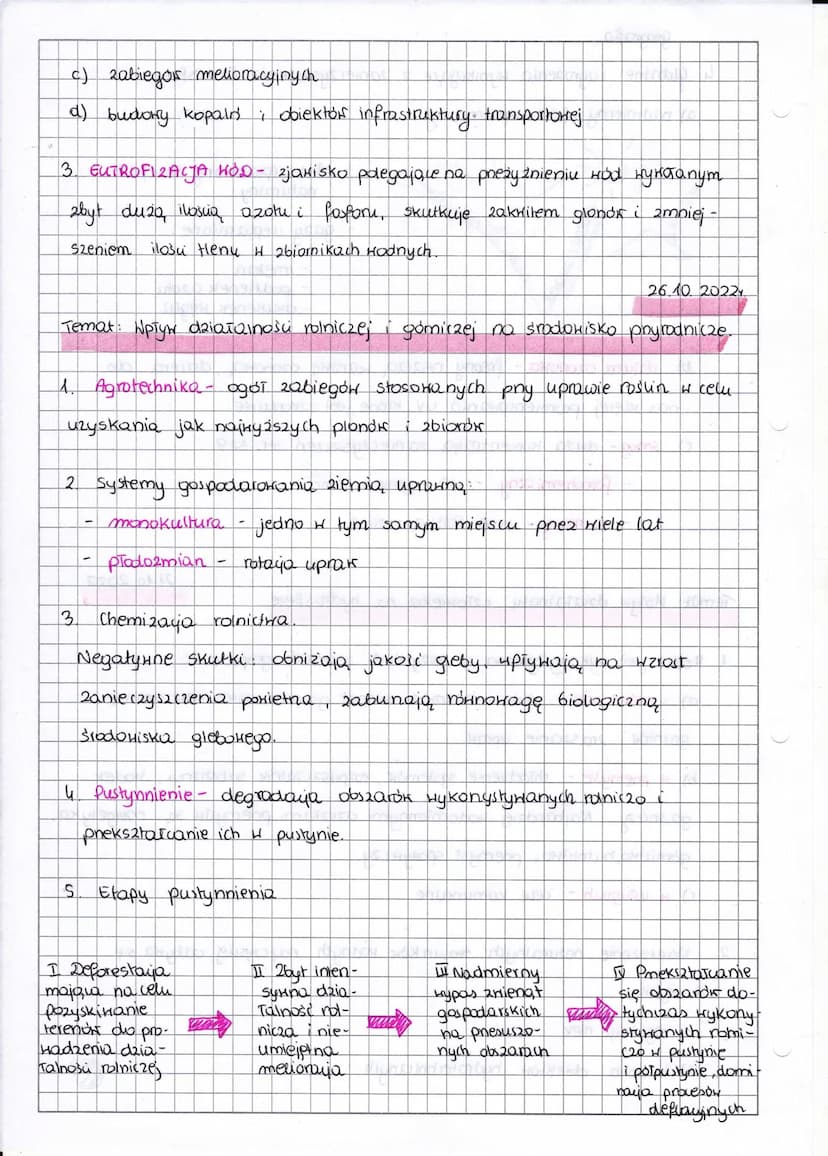 c) zabiegów melioracyjnych
d) budowy kopalń i obiektów infrastruktury transportowej
3. EUTROFIZACJA WÓD - zjawisko polegające na przeżyźnieniu wód wywołanym
zbyt dużą ilością azotu i fosforu, skutkuje zakwitem glonów i zmniej-
szeniem ilości tlenu w zbiornikach wodnych.
26.10.2022r.
Temat: Wpływ działalności rolniczej i górniczej na środowisko przyrodnicze.
1. Agrotechnika - ogół zabiegów stosowanych przy uprawie roślin w celu
uzyskania jak najwyższych plonów i zbiorów
2. Systemy gospodarowania ziemią uprawną:
- monokultura - jedno w tym samym miejscu przez wiele lat
- płodozmian - rotacja upraw
3. Chemizacja rolnictwa.
Negatywne skutki: obniżają jakość gleby, wpływają na wzrost
zanieczyszczenia powietrza, zaburzają równowagę biologiczną
środowiska glebowego.
4. Pustynnienie - degradacja obszarów wykorzystywanych rolniczo i
przekształcanie ich w pustynie.
5. Etapy pustynnienia
I Deforestacja
mająca na celu
pozyskiwanie
terenów do pro-
wadzenia dzia-
łalności rolniczej
II Zbyt inten-
sywna dzia-
łalność rol-
nicza i nie-
umiejętna
melioracja
III Nadmierny
wypas zwierząt
gospodarskich
na przesuszo-
nych obszarach
IV Przekształcanie
się obszarów do-
tychczas wykorzy-
stywanych rolni-
czo w pustynie
i półpustynie, domi-
nacja procesów
deflacyjnych